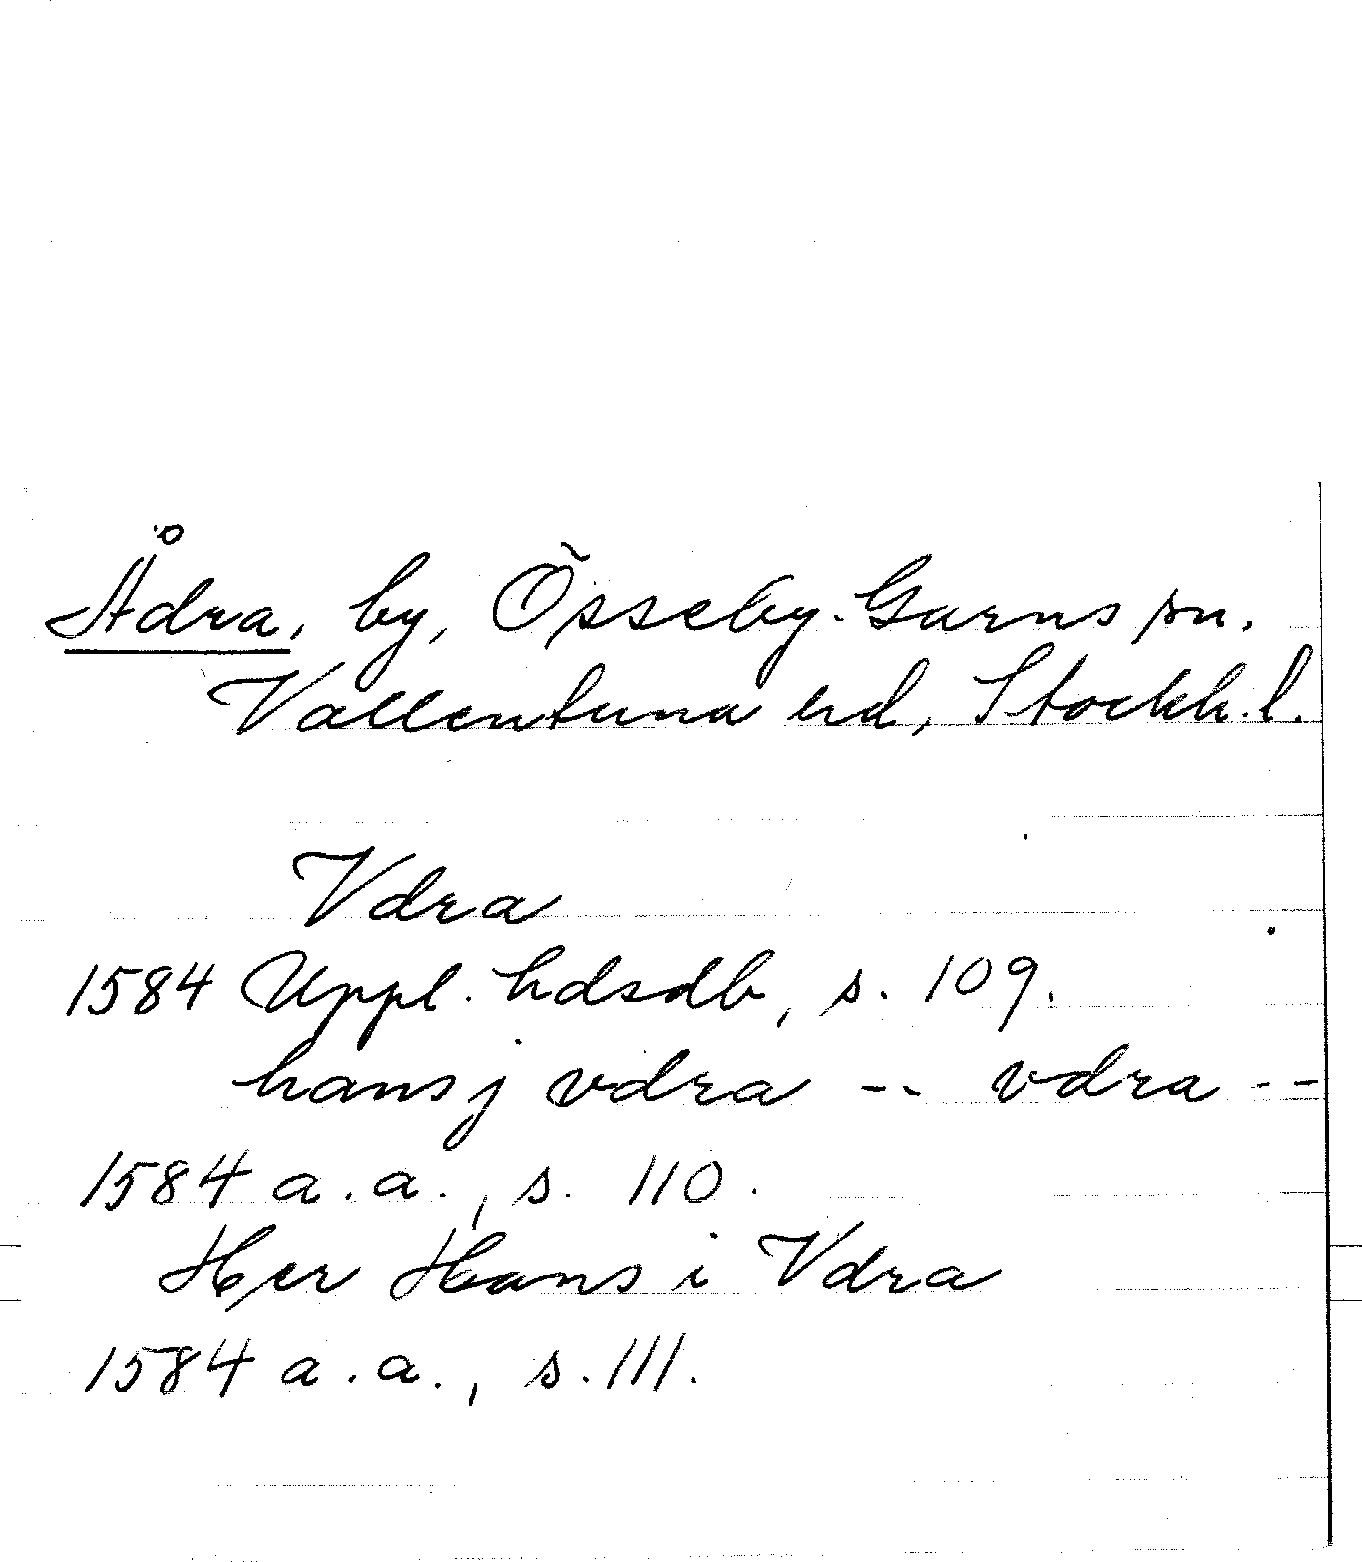 Ådra, by, Össeby-Garns sn.
Vallentuna hd, Stockh.l.
Vdra
1584 Uppl. hdsdb, s. 109.
hans j vdra -- vdra --
1584 a.a., s. 110.
Her Hans i Vdra
1584 a.a., s. 111.